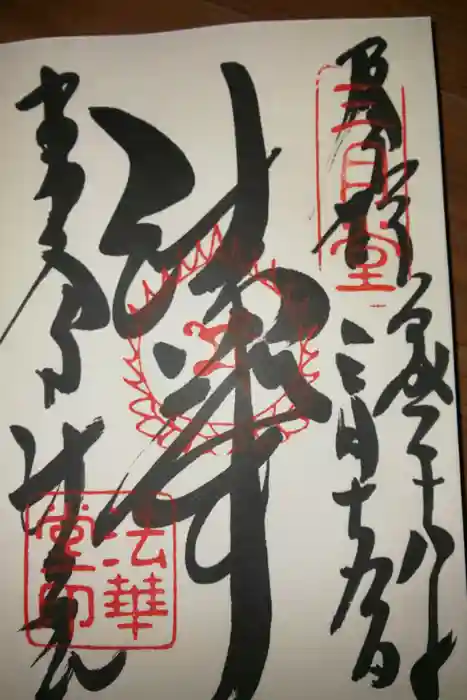 奉拝
三月堂
平成二十八年
三月十九日
東大寺
法華堂
法華
堂印